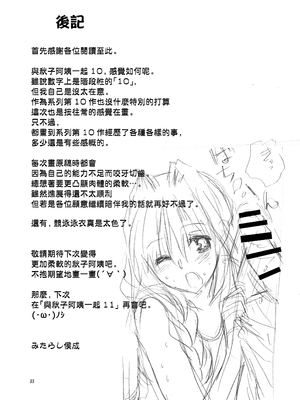 後記
首先感謝各位閱讀至此。
與秋子阿姨一起 10，感覺如何呢。
雖説數字上是階段性的「10」，
但我自己是沒太在意。
作為系列第 10 作也沒什麼特別的打算
這次也是按往常的感覺在畫。
只不過，
都畫到系列第 10 作經歷了各種各樣的事，
多少還是有些感概的。
每次畫原稿時都會
因為自己的能力不足而咬牙切齒，
總想著要更凸顯肉體的柔軟…
雖然進展得還不太順利
但若是各位願意繼續陪伴我的話就再好不過了。
還有，競泳泳衣真是太色了。
敬請期待下次變得
更加柔軟的秋子阿姨吧。
不抱期望地畫一畫(´∀｀)
那麼，下次
在「與秋子阿姨一起 11」再會吧。
(･ω･)ﾉｼ
みたらし侯成
33